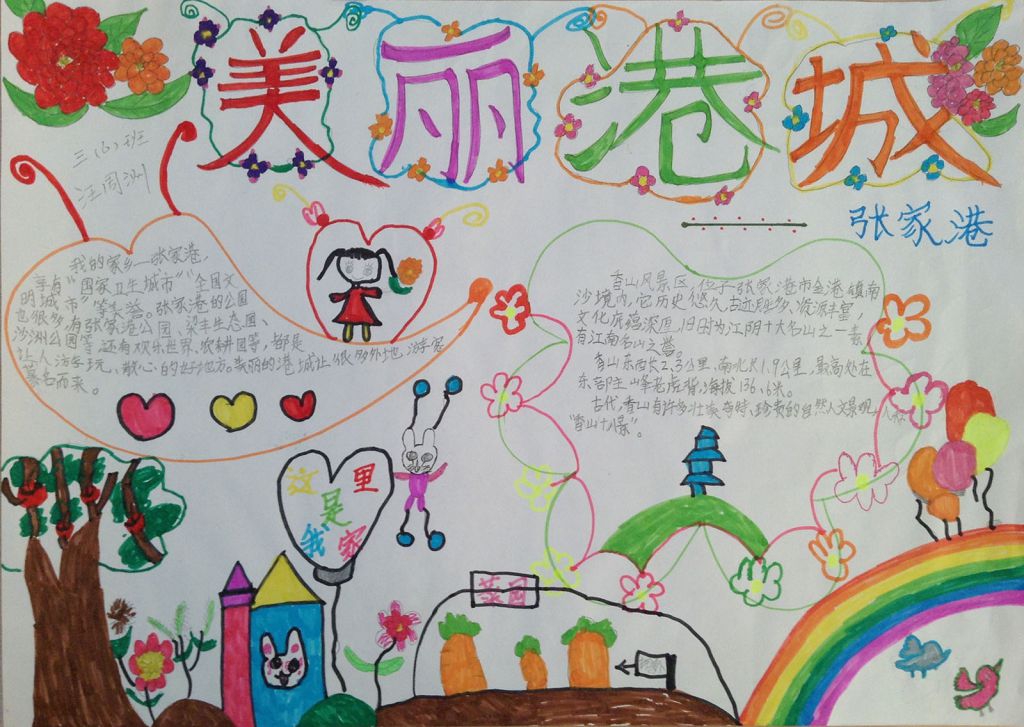 美丽港城
三(6)班
汪周洲
张家港
我的家乡—张家港,
享有"国家卫生城市""全国文
明城市"等荣誉。张家港的公园
也很多,有张家港公园、梁丰生态园、
沙洲公园等,还有欢乐世界、农耕园等,都是
让人游玩、散心的好地方。美丽的港城让很多外地游客
慕名而来。
香山风景区,位于张家港市金港镇南
沙境内,它历史悠久,古迹众多、资源丰富,
文化底蕴深厚,旧时为江阴十大名山之一,素
有江南名山之誉。
香山东西长2.3公里,南北长1.9公里,最高处在
东部主峰老虎背,海拔136.6米。
古代,香山有许多壮美奇特、珍贵的自然人文景观,人称
"香山十八景"。
这里
是
我家
菜园